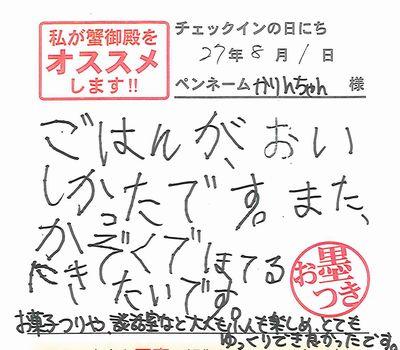 私が蟹御殿を
オススメ
します!!
チェックインの日にち
27年8月1日
ペンネーム かりんちゃん 様
ごはんが、おい
しかったです。また、
かぞくでほてる
たきしたいです。
お墨
つき
お菓子つりや、談話室など大人も小人も楽しめ、とても
ゆっくりでき良かったです。